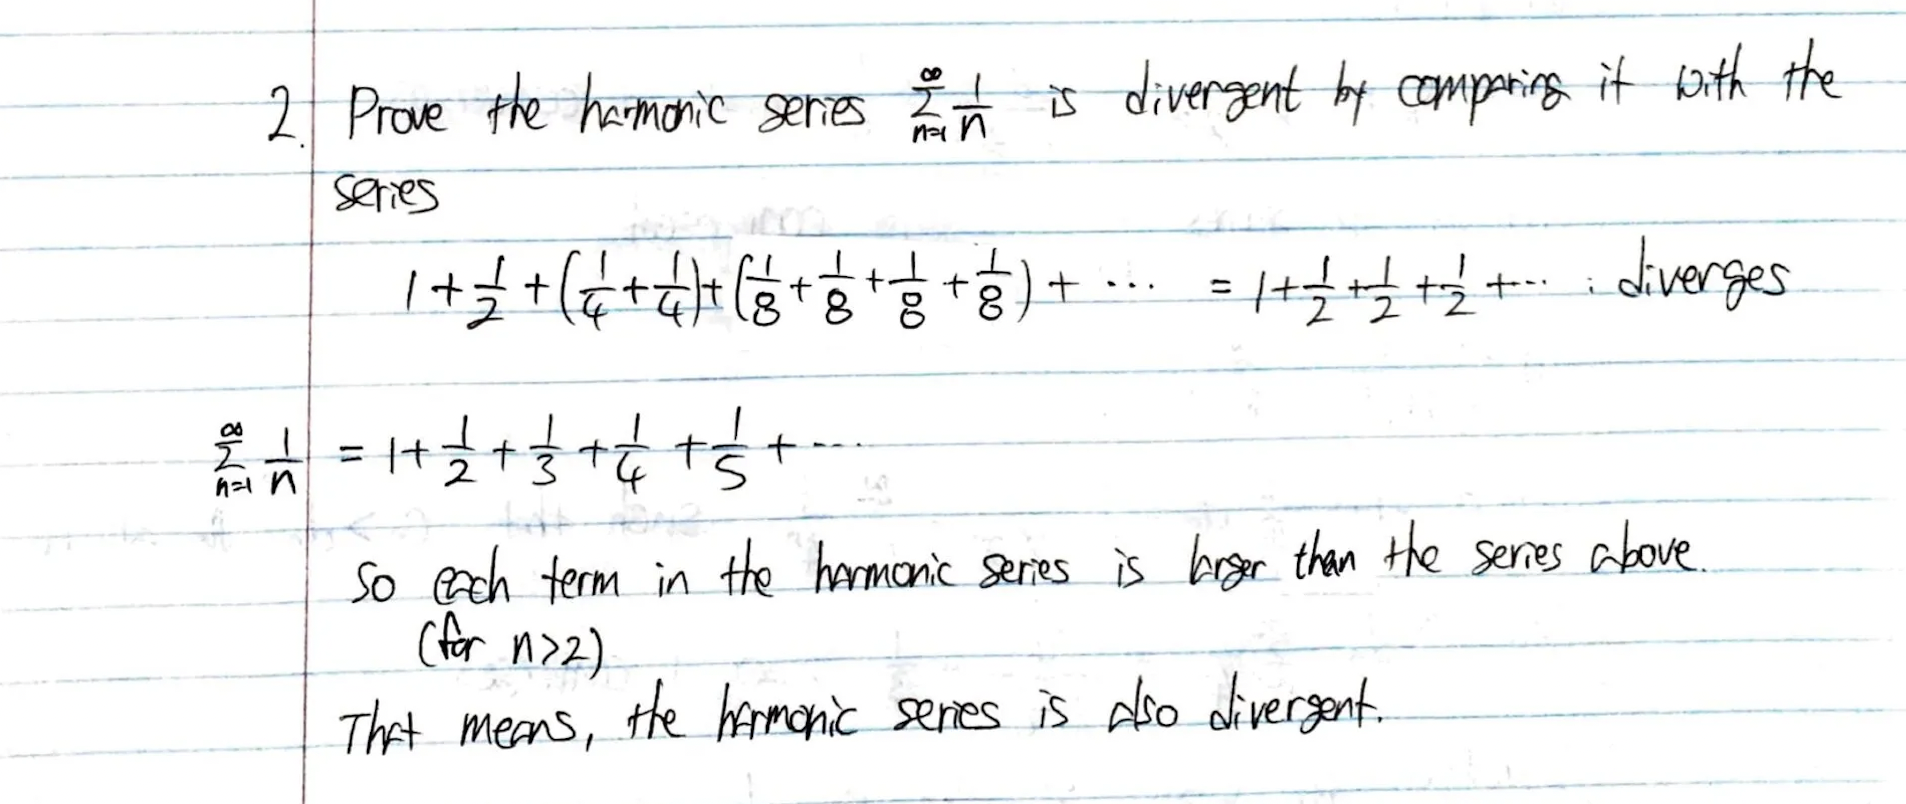 2. Prove the harmonic series ∞Σn=1 1/n is divergent by comparing it with the
series
1 + 1/2 + (1/4 + 1/4) + (1/8 + 1/8 + 1/8 + 1/8) + ... = 1 + 1/2 + 1/2 + 1/2 + ... : diverges
∞Σn=1 1/n = 1 + 1/2 + 1/3 + 1/4 + 1/5 + ...
So each term in the harmonic series is larger than the series above.
(for n>2)
That means, the harmonic series is also divergent.